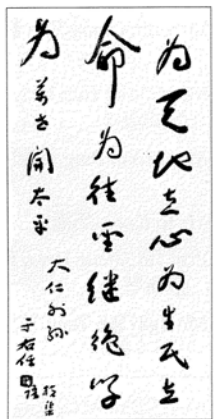 為天地立心為生民立
命為往聖繼絕學
為萬世開太平
大仁外孫
于右任